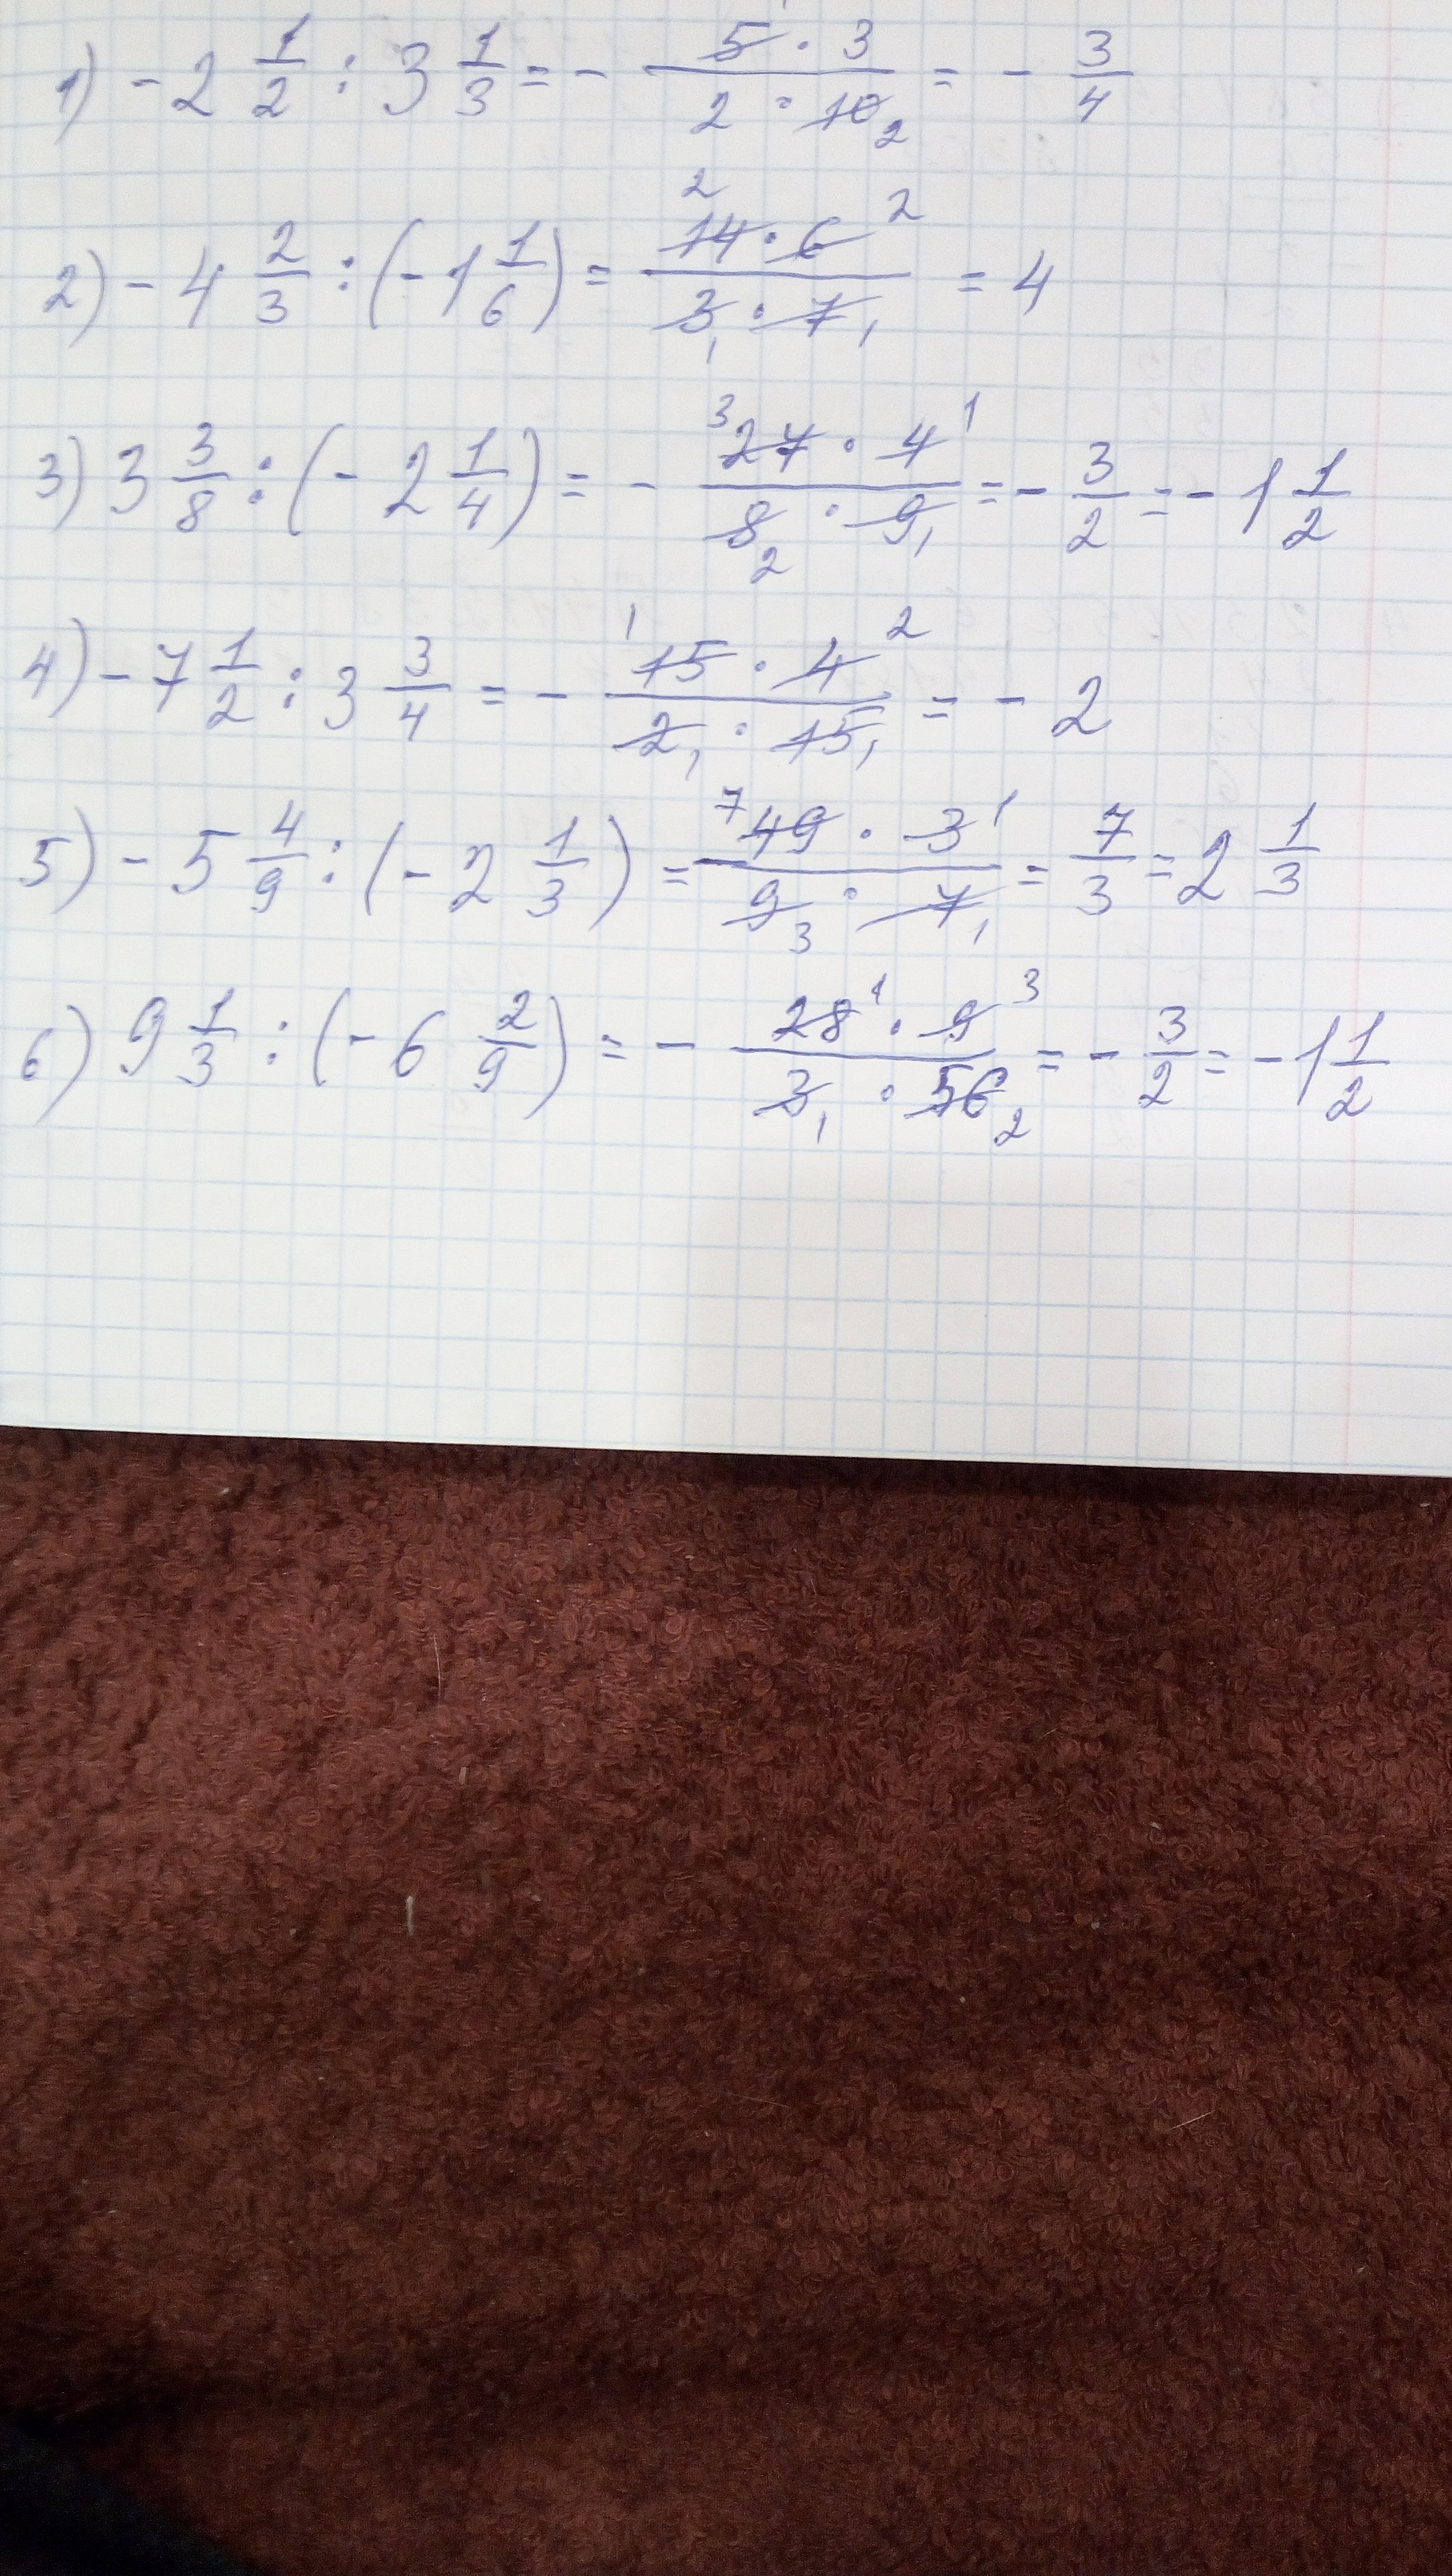 1) - 2 1/2 : 3 1/3 = - 5 · 3 / 2 · 10 2 = - 3/4
2) - 4 2/3 : (- 1 1/6) = 2 14 · 6 2 / 3 1 · 7 1 = 4
3) 3 3/8 : (- 2 1/4) = - 3 27 · 4 1 / 8 2 · 9 1 = - 3/2 = - 1 1/2
4) - 7 1/2 : 3 3/4 = - 1 15 · 4 2 / 2 1 · 15 1 = - 2
5) - 5 4/9 : (- 2 1/3) = 7 49 · 3 1 / 9 3 · 7 1 = 7/3 = 2 1/3
6) 9 1/3 : (- 6 2/9) = - 28 1 · 9 3 / 3 1 · 56 2 = - 3/2 = - 1 1/2